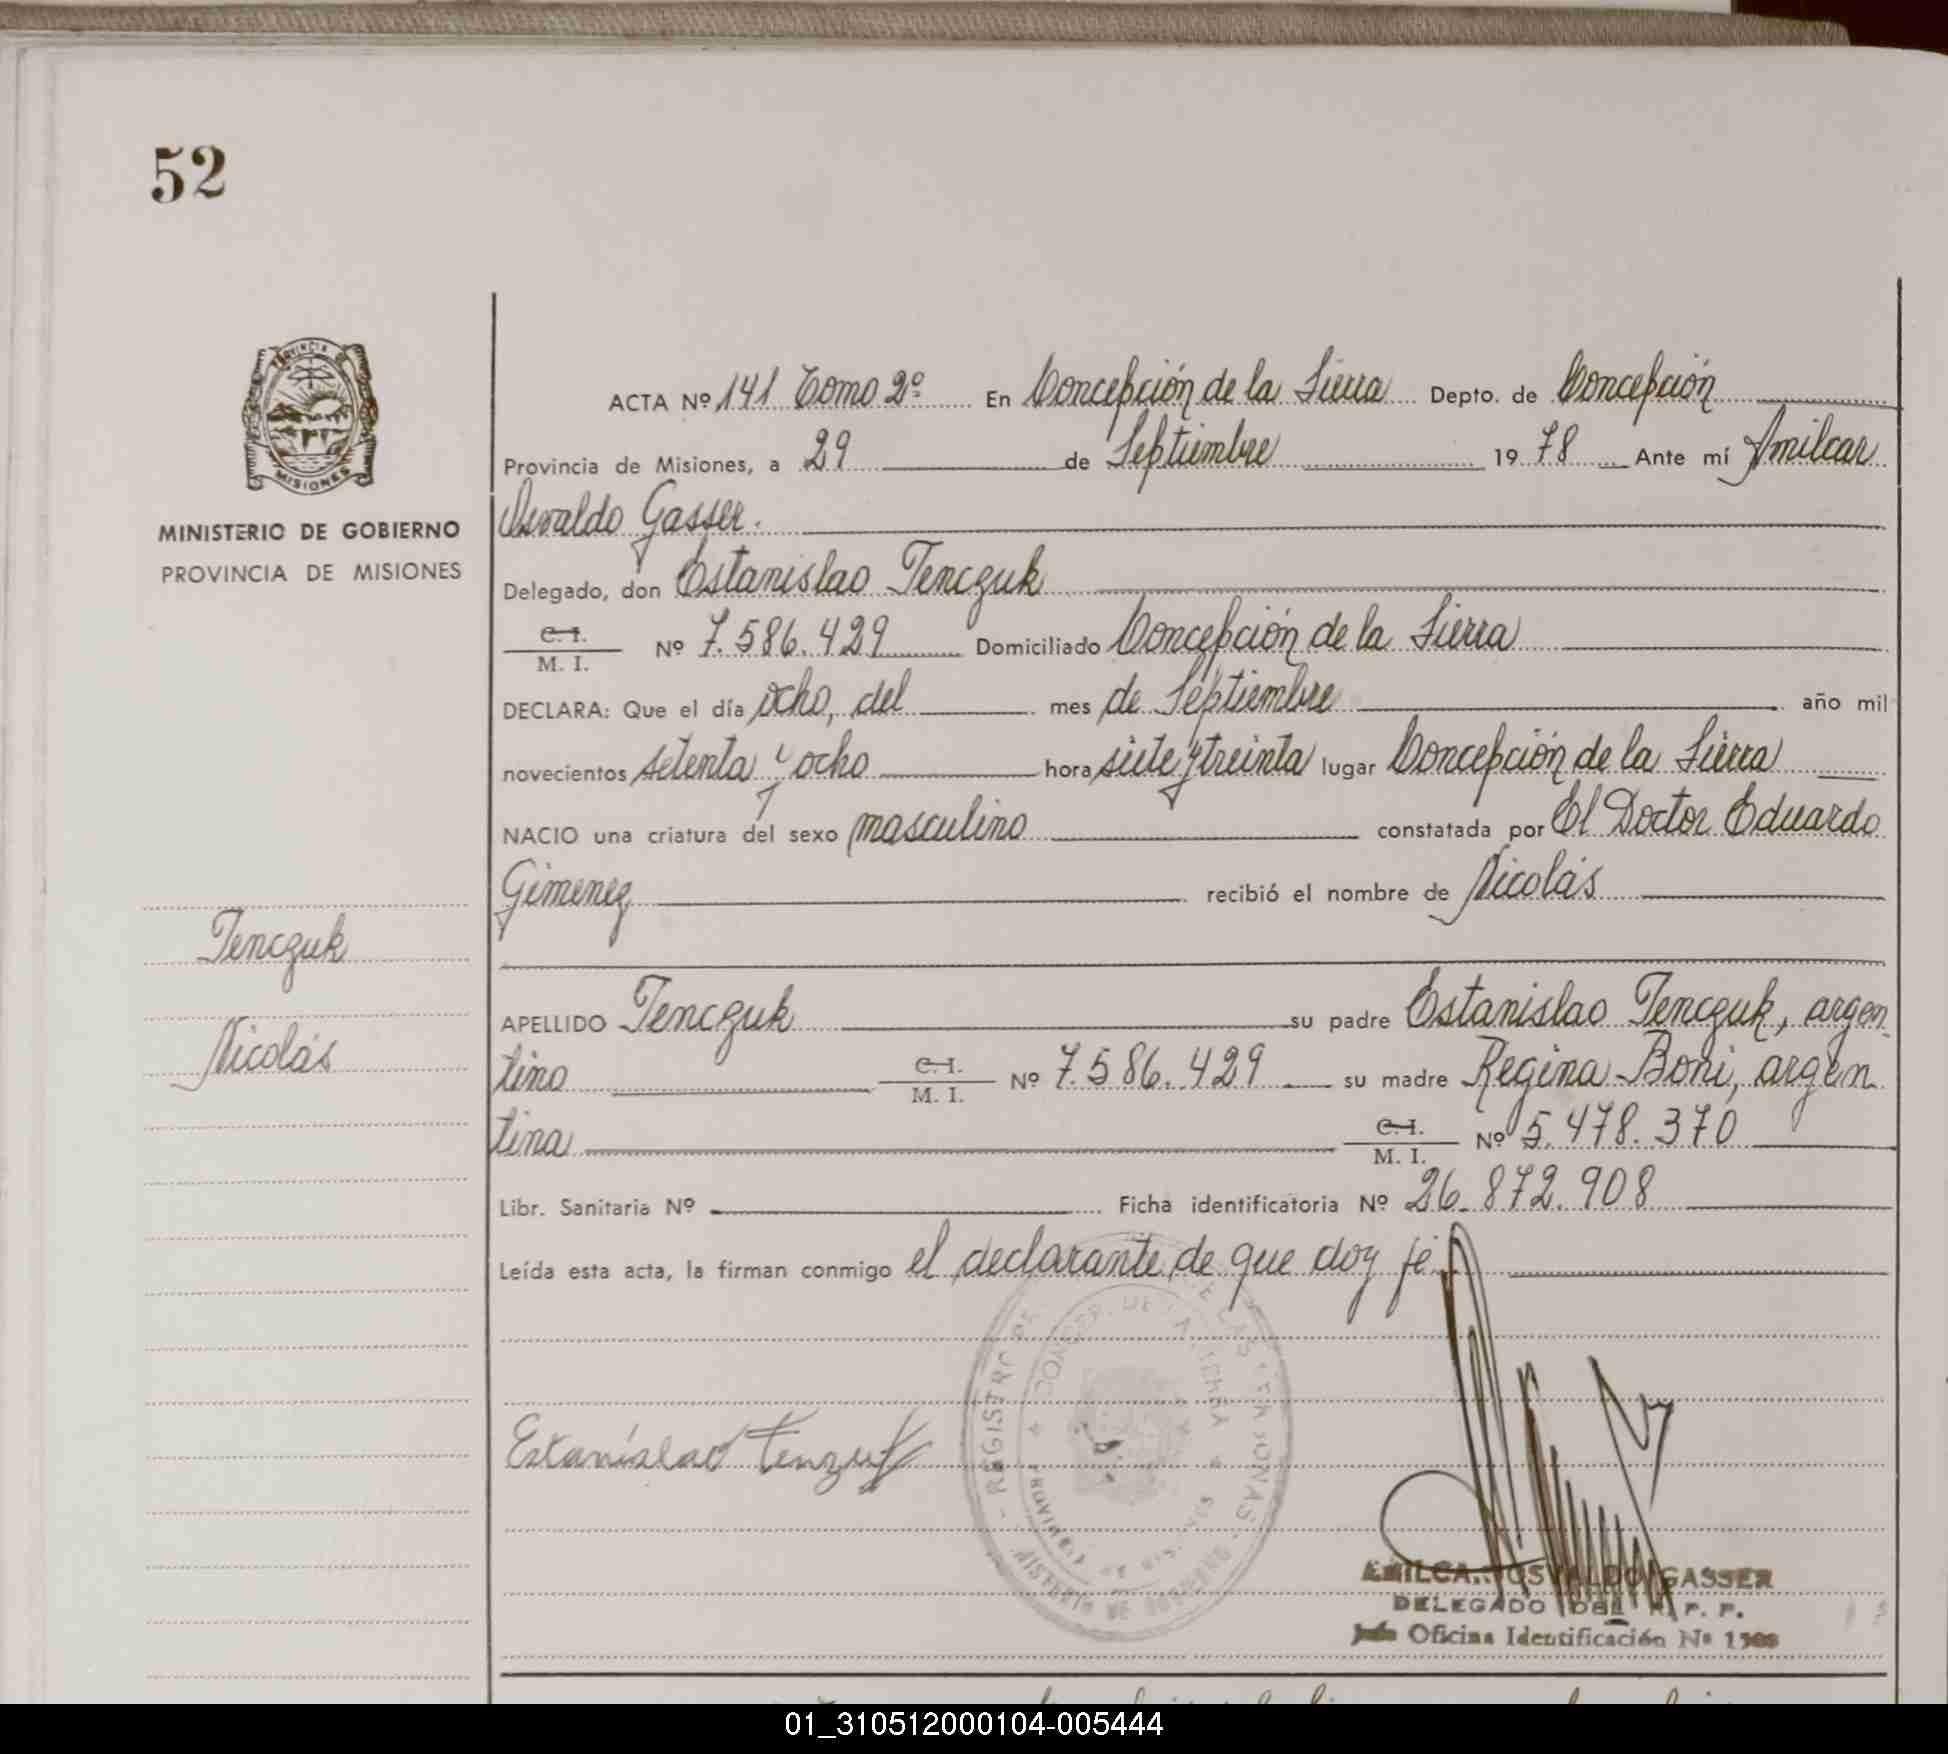 52
PROVINCIA DE
MISIONES
MINISTERIO DE GOBIERNO
PROVINCIA DE MISIONES
Tenczuk
Nicolás
ACTA Nº 141 Tomo 2º En Concepción de la Sierra Depto. de Concepción
Provincia de Misiones, a 29 de Septiembre 1978 Ante mí Amilcar
Osvaldo Gasser.
Delegado, don Estanislao Tenczuk
C. I.
M. I. Nº 7.586.429 Domiciliado Concepción de la Sierra
DECLARA: Que el día ocho, del mes de Septiembre año mil
novecientos setenta y ocho hora siete y treinta lugar Concepción de la Sierra
NACIO una criatura del sexo masculino constatada por El Doctor Eduardo
Gimenez recibió el nombre de Nicolás
APELLIDO Tenczuk su padre Estanislao Tenczuk, argen
tino C. I. M. I. Nº 7.586.429 su madre Regina Boni, argen
tina C. I. M. I. Nº 5.478.370
Libr. Sanitaria Nº Ficha identificatoria Nº 26.872.908
Leída esta acta, la firman conmigo el declarante de que doy fé
REGISTRO DE LAS PERSONAS
CONCEP. DE LA SIERRA
Estanislao Tenzuk
AMILCAR OSVALDO GASSER
DELEGADO DEL R. P. P.
Jefe Oficina Identificación Nº
01_310512000104-005444